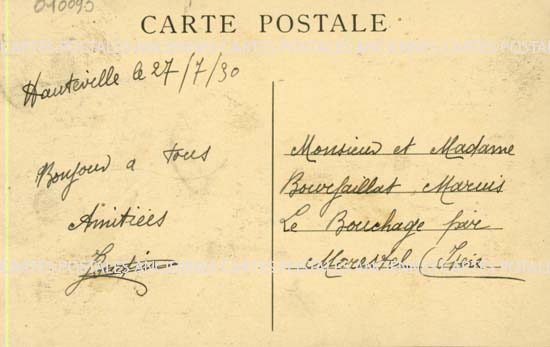 010095
CARTE POSTALE
CARTES POSTALES ANCIENNES CARTES POSTALES ANCIENNES CARTES POSTALES
Hauteville le 27/7/30
Bonjour a tous
Amitiées
Monsieur et Madame
Bourfaillat Marius
Le Bouchage par
Morestel (Isère
CARTES POSTALES ANCIENNES CARTES POSTALES ANCIENNES CARTES POSTALES